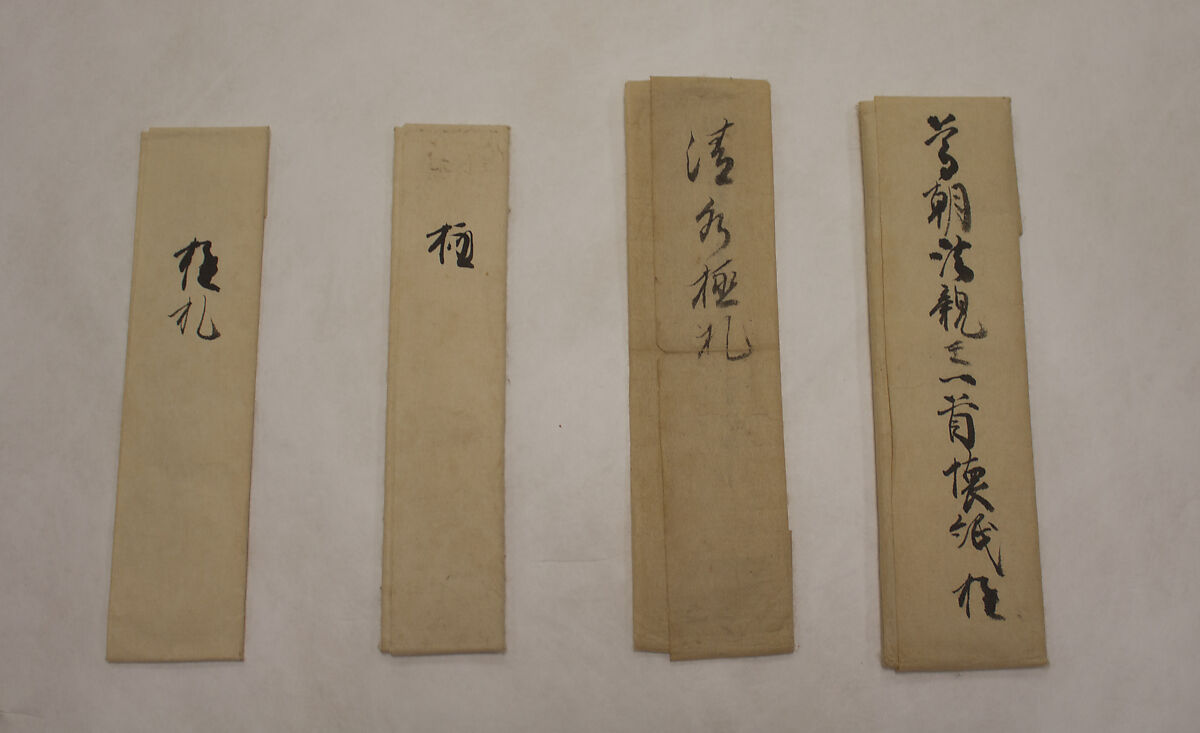 尊朝法親王首懐紙極
清水極札
極
極札